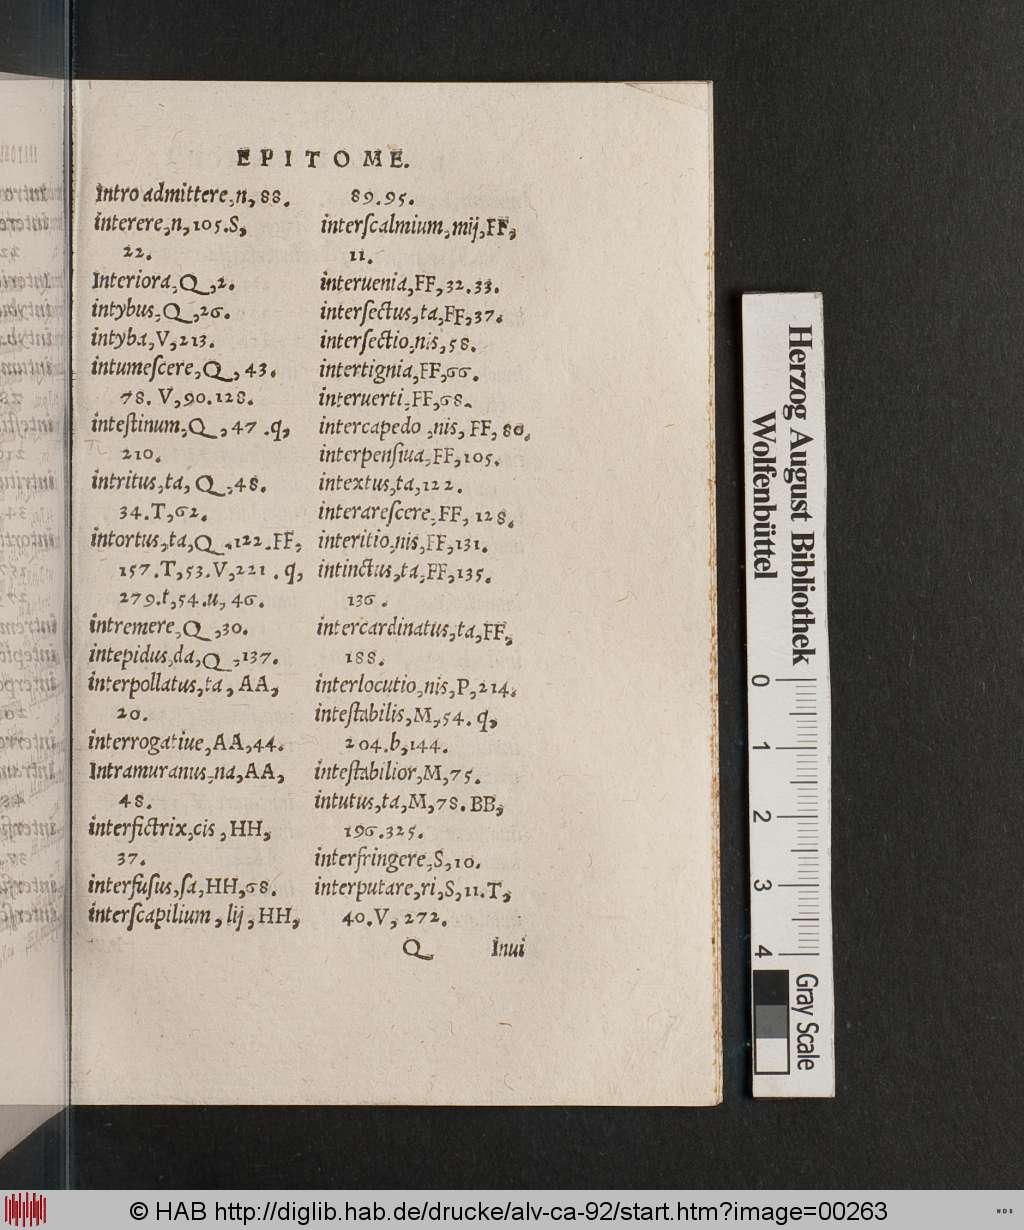 EPITOME.
Intro admittere, n, 88.
interere, n, 105. S,
22.
Interiora, Q, 2.
intybus, Q, 26.
intyba, V, 213.
intumeſcere, Q, 43.
78. V, 90. 128.
inteſtinum, Q, 47. q,
210.
intritus, ta, Q, 48.
34. T, 62.
intortus, ta, Q, 122. FF,
157. T, 53. V, 221. q,
279. t, 54. u, 46.
intremere, Q, 30.
intepidus, da, Q, 137.
interpollatus, ta, AA,
20.
interrogatiue, AA, 44.
Intramuranus, na, AA,
48.
interfictrix, cis, HH,
37.
interfuſus, ſa, HH, 68.
interſcapilium, lij, HH,
89. 95.
interſcalmium, mij, FF,
11.
interuenia, FF, 32. 33.
interſectus, ta, FF, 37.
interſectio, nis, 58.
intertignia, FF, 66.
interuerti, FF, 68.
intercapedo, nis, FF, 80.
interpenſiua, FF, 105.
intextus, ta, 122.
interareſcere, FF, 128.
interitio, nis, FF, 131.
intinctus, ta, FF, 135.
136.
intercardinatus, ta, FF,
188.
interlocutio, nis, P, 214.
inteſtabilis, M, 54. q,
204. b, 144.
inteſtabilior, M, 75.
intutus, ta, M, 78. BB,
196. 325.
interfringere, S, 10.
interputare, ri, S, 11. T,
40. V, 272.
Q Inui
Herzog August Bibliothek
Wolfenbüttel
0 1 2 3 4
Gray Scale
© HAB http://diglib.hab.de/drucke/alv-ca-92/start.htm?image=00263